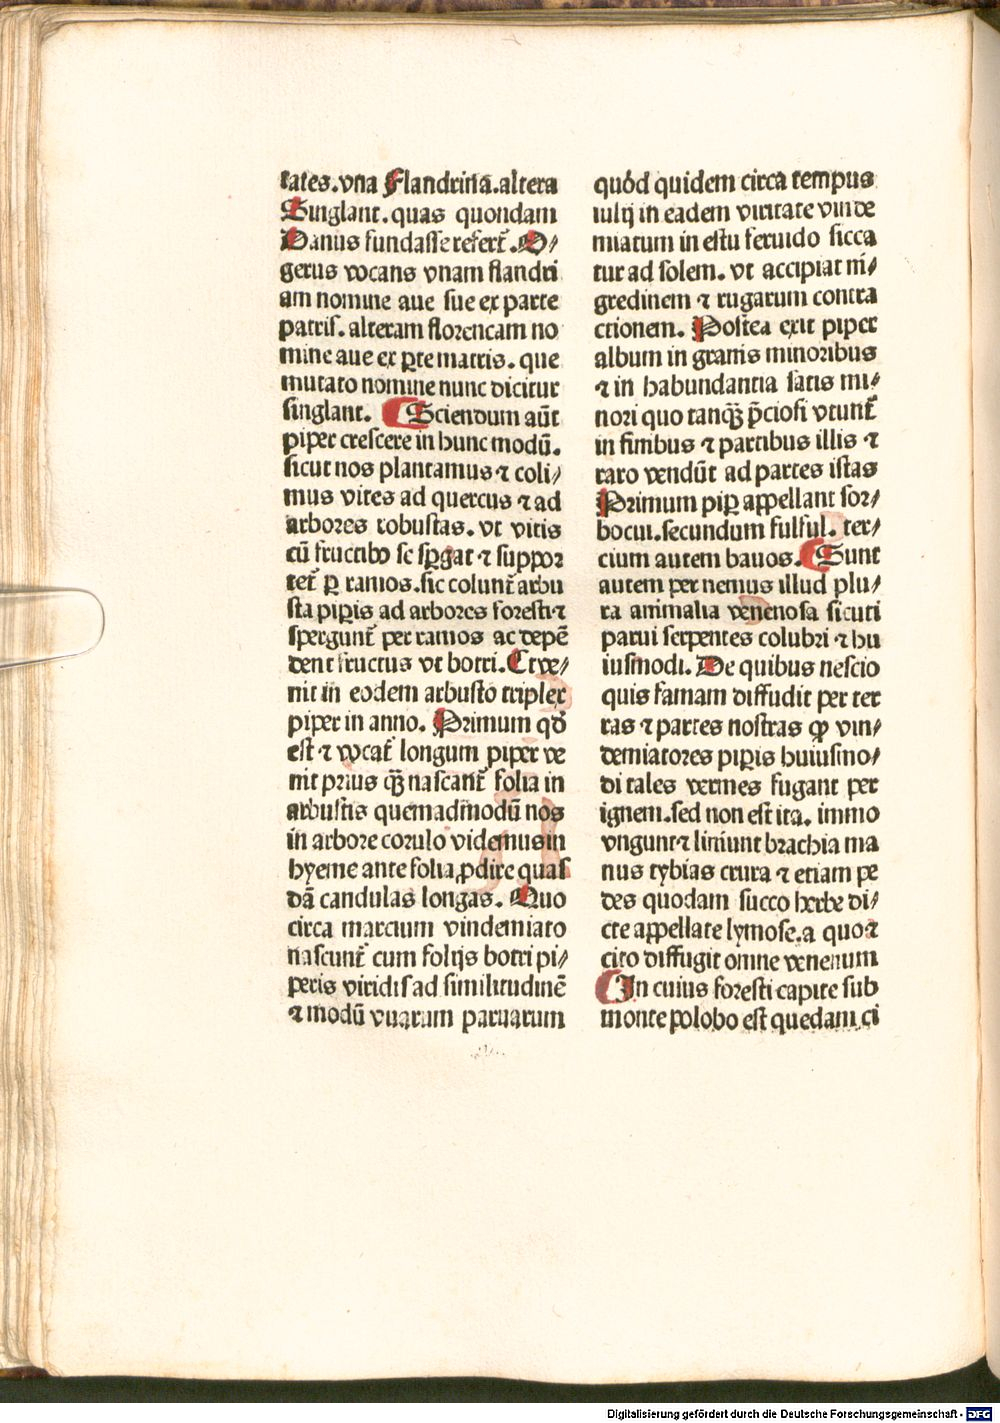 tates.vna Flandrina.altera
Singlant.quas quondam
Danus fundasse refert̄.O⸗
gerus vocans vnam flandri
am nomine aue sue ex parte
patris.alteram florencam no
mine aue ex ꝑte matris.que
mutato nomine nunc dicitur
singlant. Sciendum aūt
piper crescere in hunc modū.
sicut nos plantamus ⁊ coli⸗
mus vites ad quercus ⁊ ad
arbores robustas.vt vitis
cū fructibꝰ se sꝑgat ⁊ suppor
tet̄ ꝑ ramos.sic colunt̄ arbu
sta piꝑis ad arbores foresti ⁊
spergunt̄ per ramos ac depē
dent fructus vt botri.Et ve⸗
nit in eodem arbusto triplex
piper in anno. Primum qd̄
est ⁊ vocat̄ longum piper ve
nit prius qꝫ̄ nascant̄ folia in
arbustis quemadmodū nos
in arbore corulo videmus in
hyeme ante folia ꝓdire quas
dā candulas longas. Quo
circa marcium vindemiato
nascunt̄ cum folijs botri pi⸗
peris viridis ad similitudinē
⁊ modū vuarum paruarum
quod quidem circa tempus
iulij in eadem viritate vinde
miatum in estu feruido sicca
tur ad solem.vt accipiat ni⸗
gredinem ⁊ rugarum contra
ctionem. Postea exit piper
album in granis minoribus
⁊ in habundantia satis mi⸗
nori quo tanqꝫ̄ p̄ciosi vtunt̄
in finibus ⁊ partibus illis ⁊
raro vendūt ad partes istas
Primum piꝑ appellant sor⸗
botut.secundum fulful.ter⸗
cium autem bauos. Sunt
autem per nemus illud plu⸗
ra animalia venenosa sicuti
parui serpentes colubri ⁊ hu
iusmodi. De quibus nescio
quis famam diffudit per ter
ras ⁊ partes nostras ꝙ vin⸗
demiatores piꝑis huiusmo⸗
di tales vermes fugant per
ignem.sed non est ita. immo
vngunt ⁊ liniunt brachia ma
nus tybias crura ⁊ etiam pe
des quodam succo herbe di⸗
cte appellate lymose.a quo ⁊
cito diffugit omne venenum
In cuius foresti capite sub
monte polobo est quedam ci
Digitalisierung gefördert durch die Deutsche Forschungsgemeinschaft - DFG